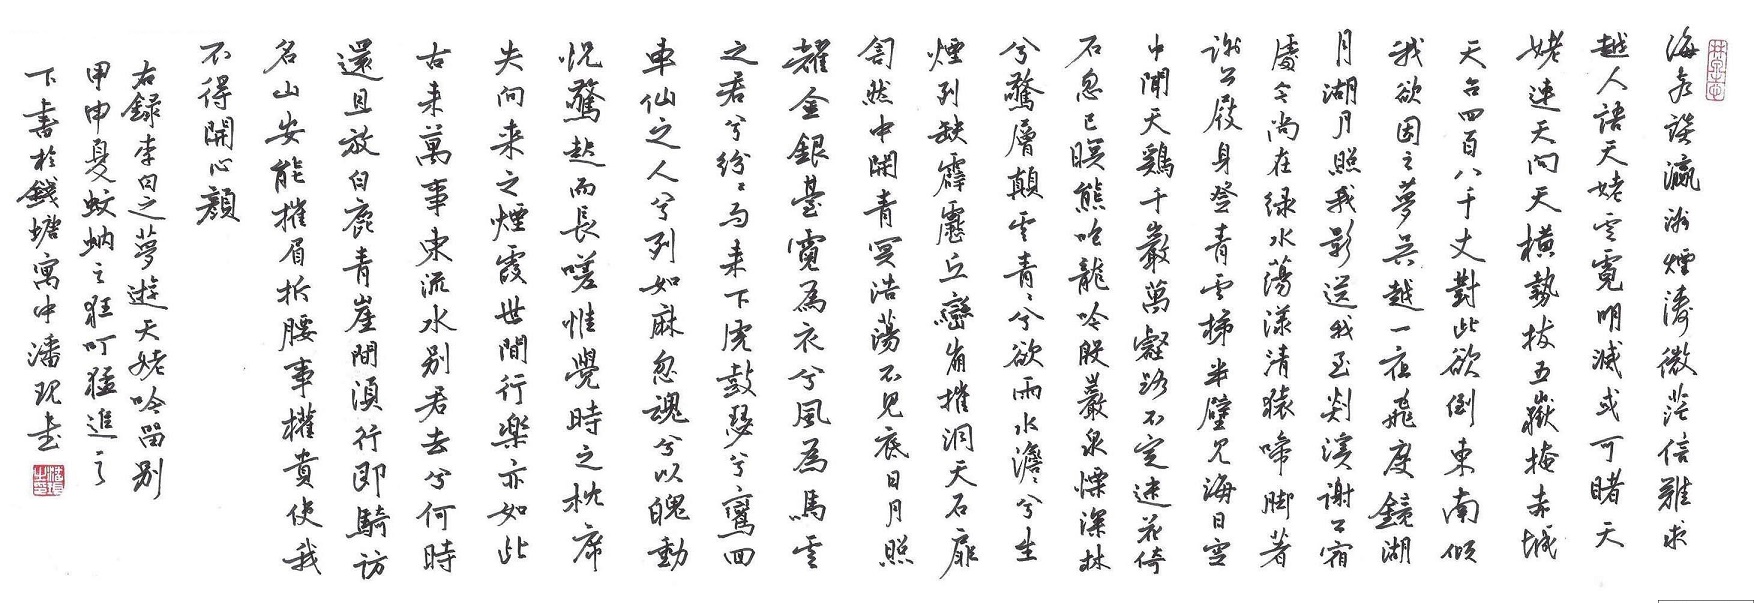 海客談瀛洲煙濤微茫信難求
越人語天姥雲霓明滅或可睹天
姥連天向天橫勢拔五嶽掩赤城
天台四百八千丈對此欲倒東南傾
我欲因之夢吳越一夜飛度鏡湖
月湖月照我影送我至剡溪謝公宿
處今尚在綠水蕩漾清猿啼脚著
謝公屐身登青雲梯半壁見海日空
中聞天鷄千巖萬壑路不定迷花倚
石忽已暝熊咆龍吟殷巖泉慄深林
兮驚層顛雲青〻兮欲雨水澹〻兮生
煙列缺霹靂丘巒崩摧洞天石扉
訇然中開青冥浩蕩不見底日月照
耀金銀臺霓為衣兮風為馬雲
之君兮紛〻而来下虎鼓瑟兮鸞回
車仙之人兮列如麻忽魂兮以魄動
怳驚起而長嗟惟覺時之枕席
失向来之煙霞世間行樂亦如此
古来萬事東流水别君去兮何時
還且放白鹿青崖間須行即騎訪
名山安能摧眉折腰事權貴使我
不得開心顏
右録李白之夢遊天姥吟留别
甲申夏蚊蚋之狂叮猛進之
下書於錢塘寓中潘